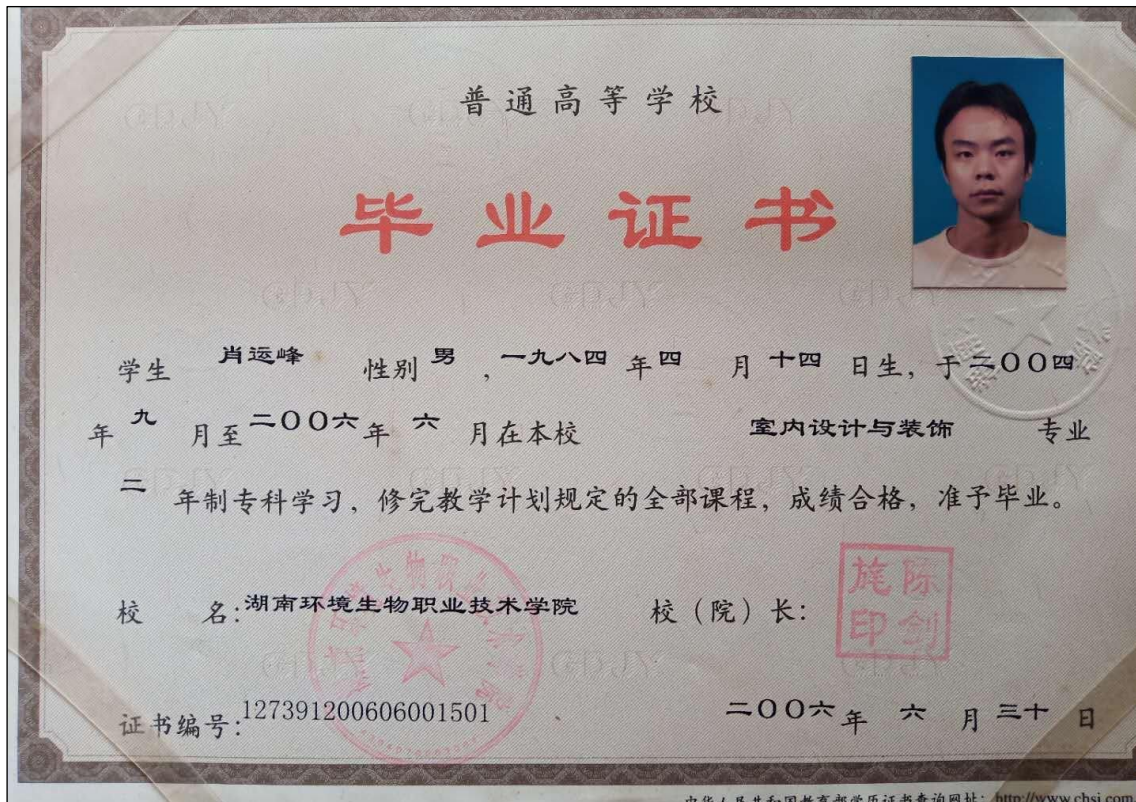 普通高等学校
毕业证书
学生 肖运峰 性别 男 ，一九八四 年 四 月 十四 日生，于 二〇〇四
年 九 月至 二〇〇六 年 六 月在本校 室内设计与装饰 专业
二 年制专科学习，修完教学计划规定的全部课程，成绩合格，准予毕业。
校 名：湖南环境生物职业技术学院 校（院）长：
陈剑旄印
证书编号：127391200606001501 二〇〇六 年 六 月 三十 日
中华人民共和国教育部学历证书查询网址：http://www.chsi.com